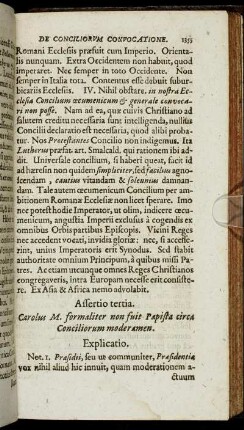 DE CONCILIORVM CONVOCATIONE. 1353
Romani Ecclesiis præfuit cum Imperio. Orienta-
lis nunquam. Extra Occidentem non habuit, quod
imperaret. Nec semper in toto Occidente. Non
semper in Italia tota. Contentus esse debuit subur-
bicariis Ecclesiis. IV. Nihil obstare. in nostra Ec-
clesia Concilium œcumenicum & generale convoca-
ri non posse. Nam ad ea, quæ cuivis Christiano ad
salutem creditu necessaria sunt intelligenda, nullius
Concilii declaratio est necessaria, quod alibi proba-
tur. Nos Protestantes Concilio non indigemus. Ita
Lutherus præfat. art. Smalcald. qui rationem ibi ad-
dit. Universale concilium, si haberi queat, facit id
ad hæresin non quidem simpliciter, sed facilius agno-
scendam, cautius vitandam & solennius damnan-
dam. Tale autem œcumenicum Concilium per am-
bitionem Romanæ Ecclesiæ non licet sperare. Imo
nec potest hodie Imperator, ut olim, indicere œcu-
menicum, angustia Imperii exclusus à cogendis ex
omnibus Orbis partibus Episcopis. Vicini Reges
nec accedent vocati, invidia gloriæ: nec, si accesse-
rint, unius Imperatoris erit Synodus. Sed stabit
authoritate omnium Principum, à quibus missi Pa-
tres. Ac etiam utcunque omnes Reges Christianos
congregaveris, intra Europam necesse erit consiste-
re. Ex Asia & Africa nemo advolabit.
Assertio tertia.
Carolus M. formaliter non fuit Papista circa
Conciliorum moderamen.
Explicatio.
Not. 1. Præsidii, seu ut communiter, Præsidentiæ
vox nihil aliud hic innuit, quam moderationem a-
ctuum